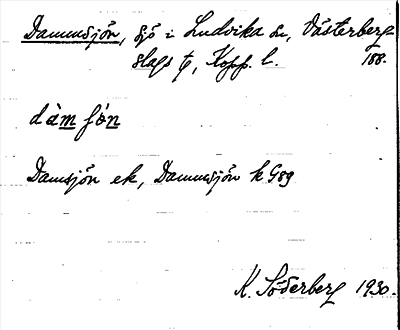 Dammsjön, sjö i Ludvika sn, Västerberg
slags tg, Kopp. l. 188.
dàmʃön
Damsjön ek, Dammsjön k G89
K. Söderberg 1930.